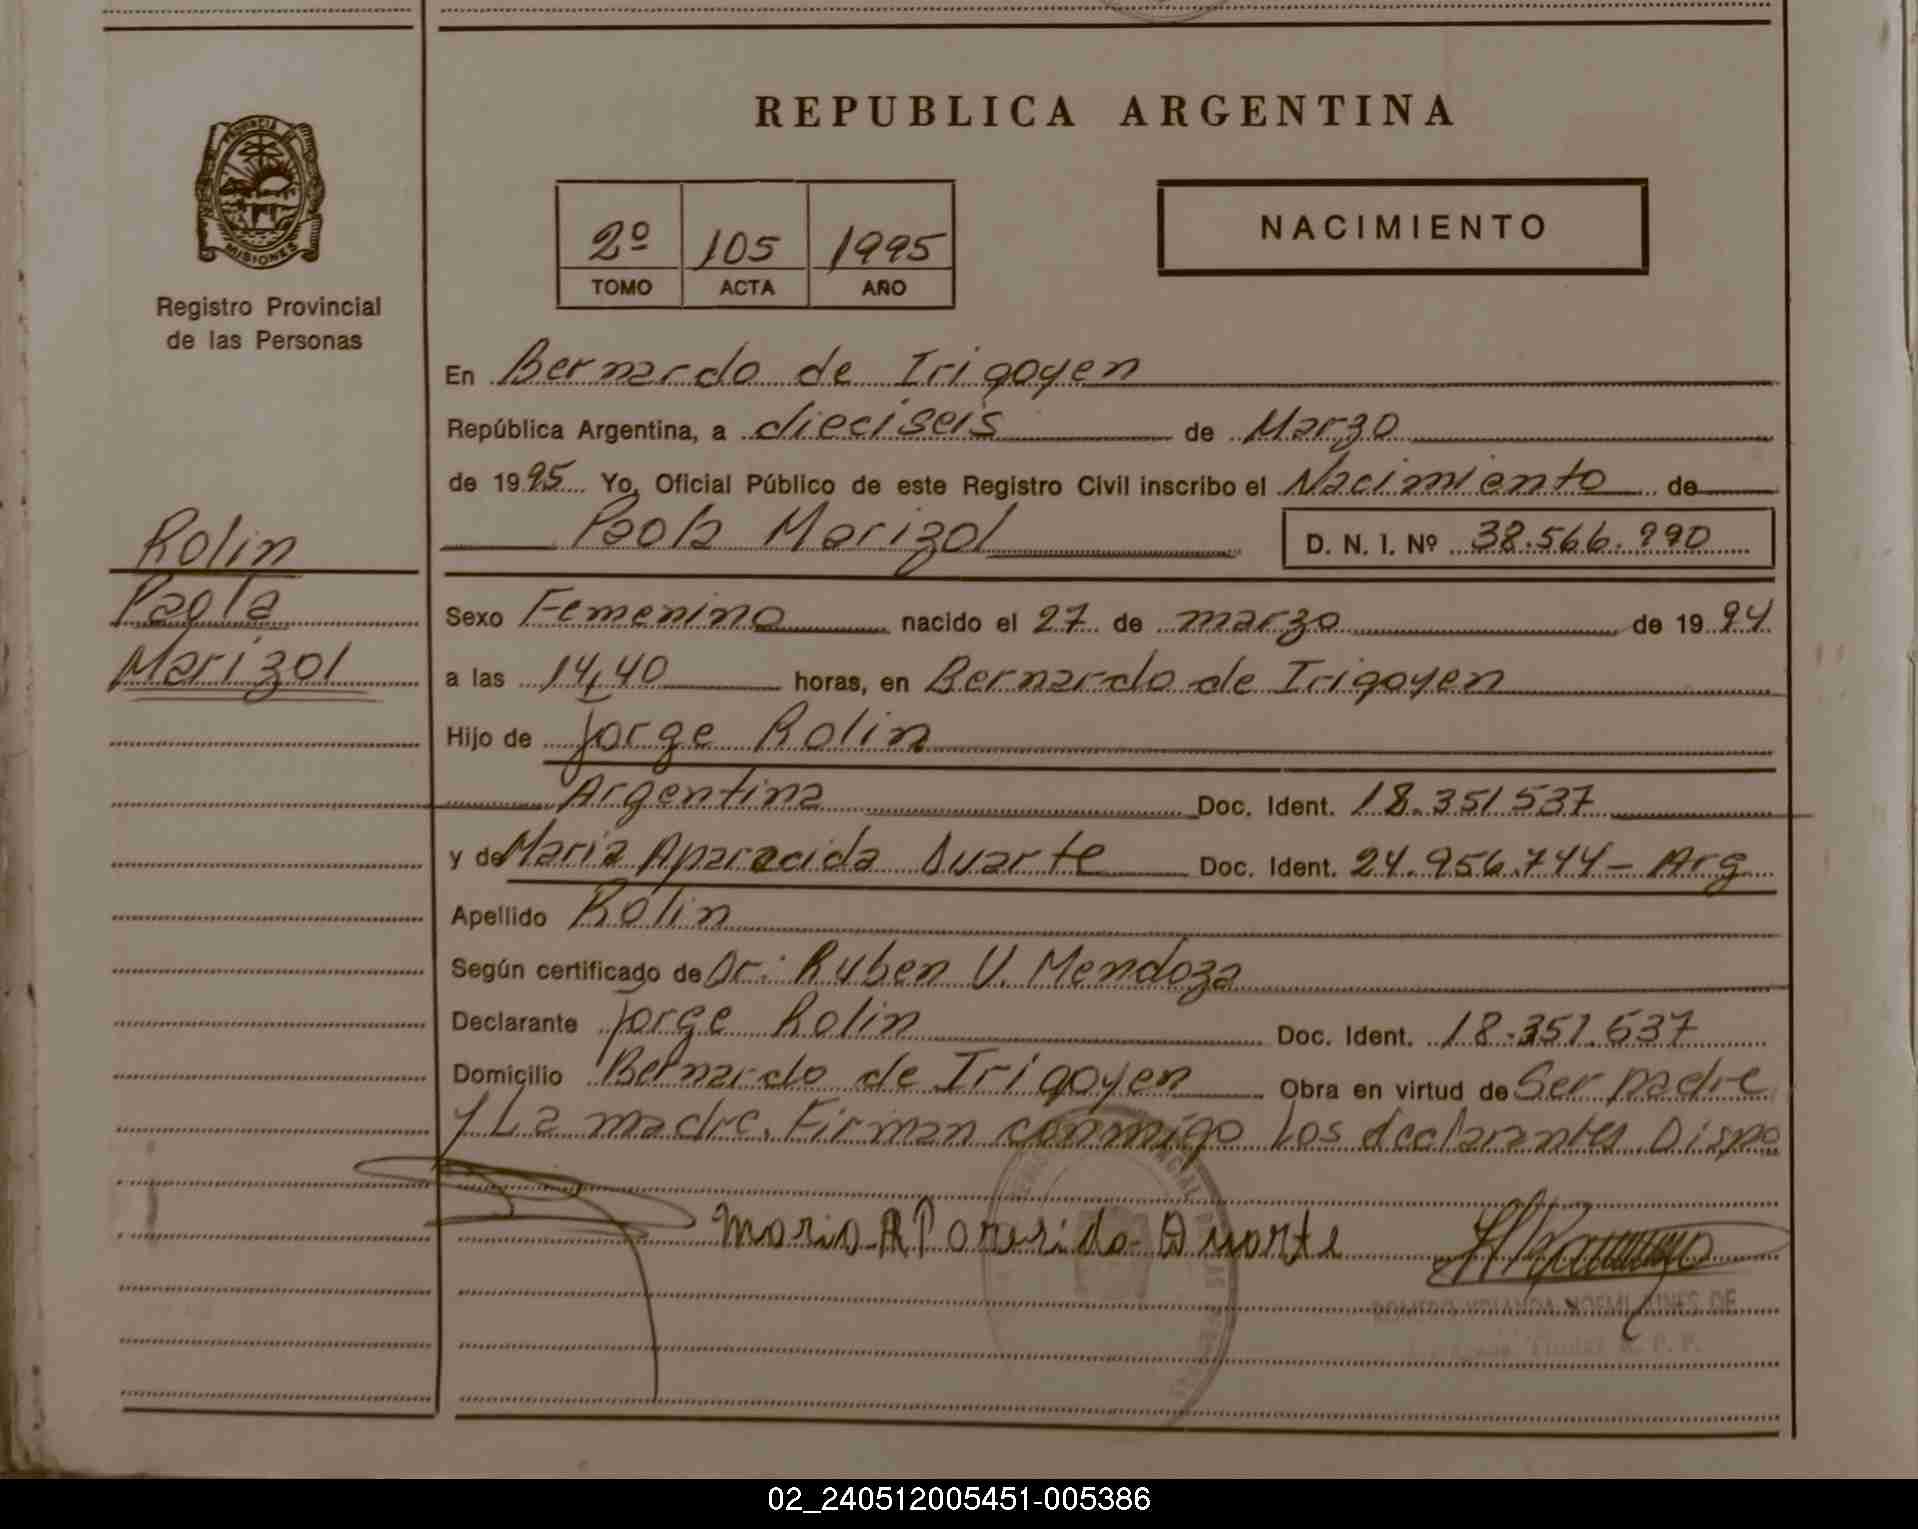 PROVINCIA DE
MISIONES
Registro Provincial
de las Personas
Rolin
Paola
Marizol
REPUBLICA ARGENTINA
2º 105 1995
TOMO ACTA AÑO
NACIMIENTO
En Bernardo de Irigoyen
República Argentina, a dieciseis de Marzo
de 1995 Yo, Oficial Público de este Registro Civil inscribo el Nacimiento de
Paola Marizol D. N. I. Nº 38.566.990
Sexo Femenino nacido el 27 de marzo de 1994
a las 14,40 horas, en Bernardo de Irigoyen
Hijo de Jorge Rolin
Argentina Doc. Ident. 18.351537
y de Maria Aparacida Duarte Doc. Ident. 24.956.744- Arg
Apellido Rolin
Según certificado de Dr: Ruben V. Mendoza
Declarante Jorge Rolin Doc. Ident. 18.351.537
Domicilio Bernardo de Irigoyen Obra en virtud de Ser padre
y La madre. Firman conmigo los declarantes. Dispo
Maria Duarte
NOEMI
02_240512005451-005386